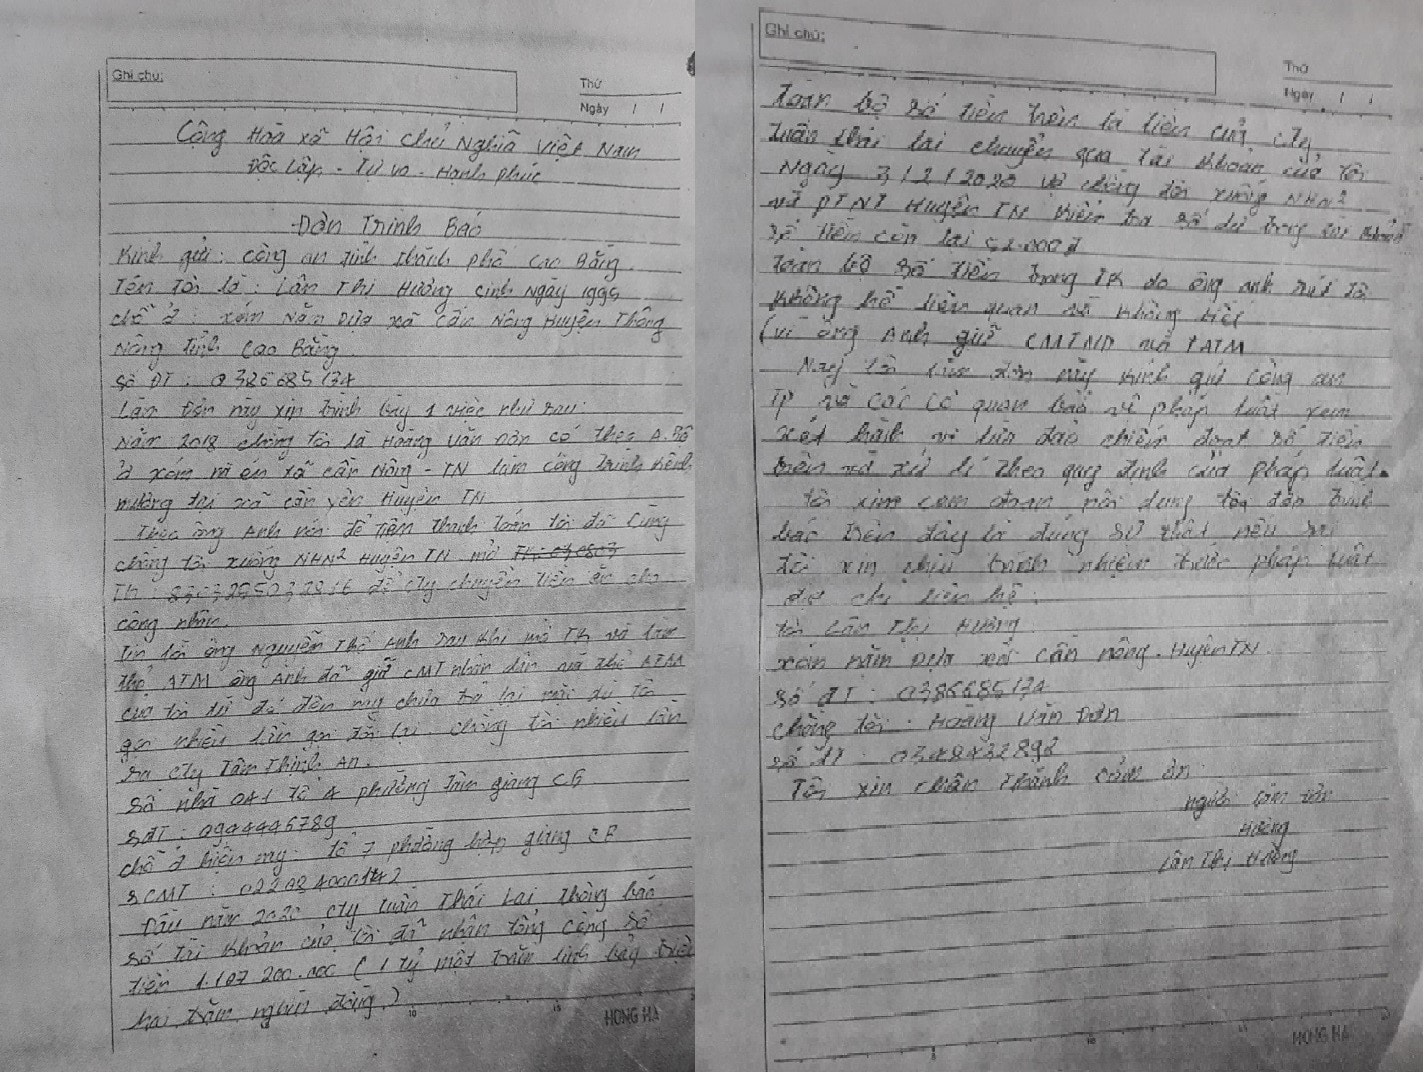 Ghi chú:
Thứ
Ngày / /
Cộng Hoà xã Hội Chủ Nghĩa Việt Nam
Độc lập - Tự Do - Hạnh phúc
Đơn Trình Báo
Kính gửi: công an tỉnh thành phố Cao Bằng.
Tên tôi là: Lân Thị Hường sinh ngày 1995
chỗ ở: xóm Nặm Dựa xã Cần Nông Huyện Thông
Nông tỉnh Cao Bằng
Số ĐT: 0386685174
Làm Đơn này xin trình bày 1 việc như sau:
Năm 2018 chồng tôi là Hoàng Văn Dơn có theo A. Bộ
ở xóm xã Cần Nông - TN làm công trình kênh
mương tại xã Cần Yên Huyện TN
Theo ông Anh nói để tiện thanh toán tôi đã cùng
chồng tôi xuống NHN² Huyện TN mở
TK: để cty chuyển tiền cho
công nhân.
Tin lời ông Nguyễn Thế Anh sau khi mở TK và làm
thẻ ATM ông Anh đã giữ CMT nhân dân và thẻ ATM
của tôi từ đó đến nay chưa trả lại mặc dù tôi
gọi nhiều lần chồng tôi nhiều lần
ra cty Tâm Thịnh An.
Số nhà 041 tổ 4 phường Tân giang CB
SĐT: 0944446789
chỗ ở hiện nay: tổ 7 phường giang CB
SCMT:
Đầu năm 2020 cty Luân Thái Lai thông báo
số tài khoản của tôi đã nhận tổng cộng số
tiền 1.107.200.000 (1 tỷ một trăm linh bảy triệu
hai trăm nghìn đồng)
HONG HA
Ghi chú:
Thứ
Ngày / /
Toàn bộ số tiền trên là tiền của cty
Luân Thái Lai chuyển qua tài khoản của tôi
Ngày 3/2/2020 vợ chồng tôi xuống NHN²
và PTNT Huyện TN kiểm tra số dư trong tài khoản
số tiền còn lại 52.000đ
Toàn bộ số tiền trong TK do ông anh rút tôi
không hề liên quan và không biết
(vì ông Anh giữ CMTND và TATM
Nay tôi làm đơn này kính gửi công an
TP và các cơ quan bảo vệ pháp luật xem
xét hành vi lừa đảo chiếm đoạt số tiền
trên và xử lí theo quy định của pháp luật.
Tôi xin cam đoan nội dung tôi trình
báo trên đây là đúng sự thật nếu sai
tôi xin chịu trách nhiệm trước pháp luật
địa chỉ liên hệ:
tôi Lân Thị Hường
xóm nặm Dựa xã Cần nông - Huyện TN.
Số ĐT: 0386685174
chồng tôi: Hoàng Văn Dơn
số ĐT: 0348432892
Tôi xin chân thành cảm ơn
người làm đơn
Hường
Lân Thị Hường
HONG HA